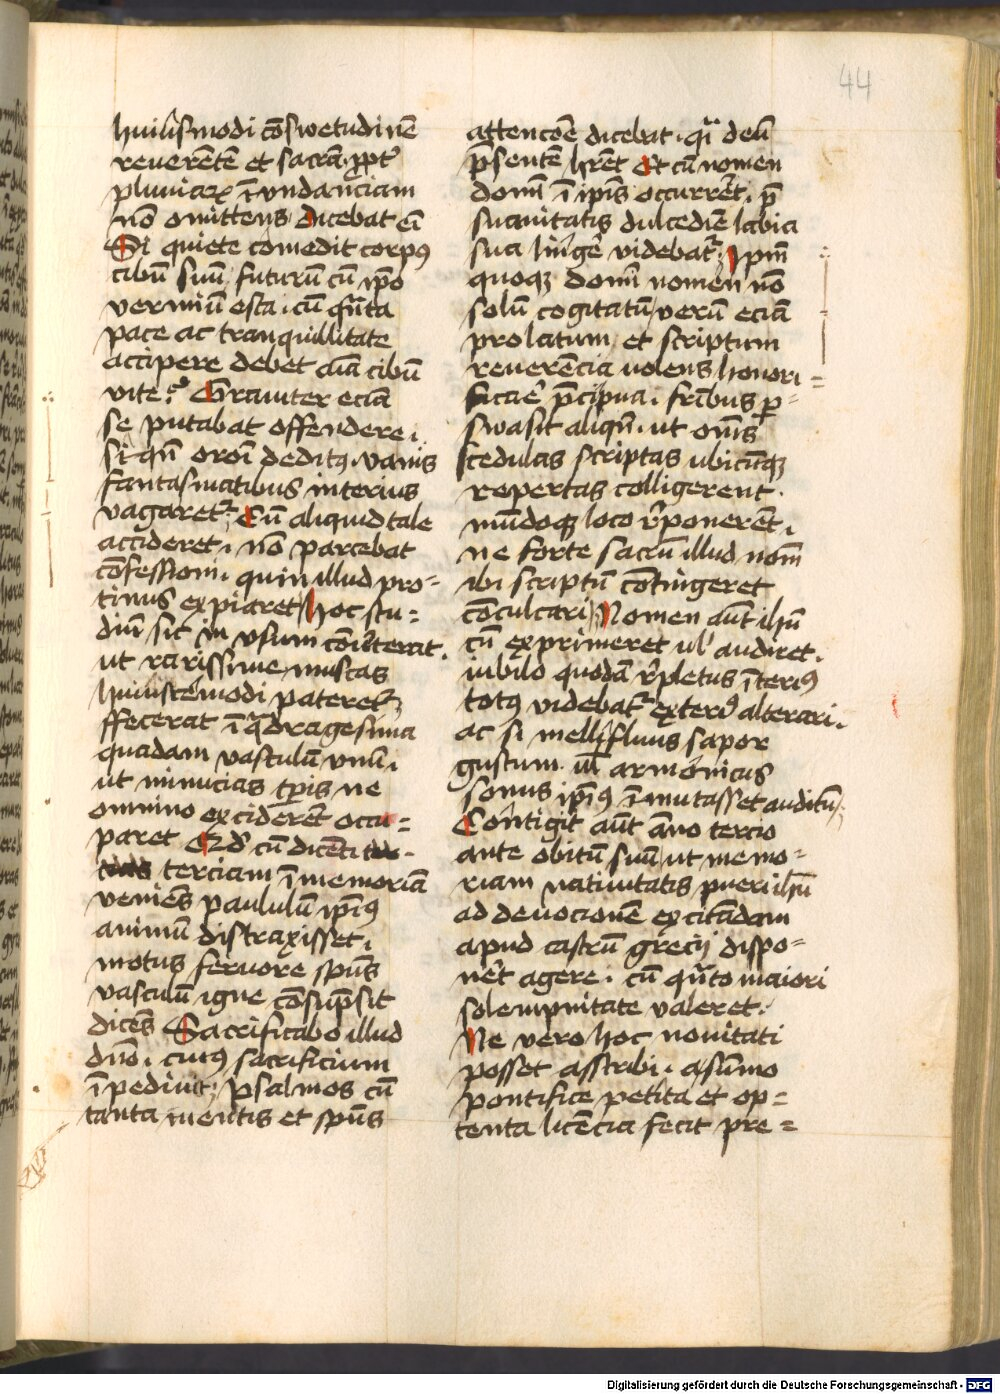 44
huiusmodi cōswetudinē
reuerētē et sacrā, ꝓpt̄
pluuiaꝝ ī vndanciam
nō omittens dicebat eī
Si quiete comedit corpꝰ
cibū suū, futurū cū ip̄o
vermiū esca, cū q̄nta
pace ac tranquillitate
accipere debet aīa cibū
vite? Grauiter eciā
se putabat offendere,
si qn̄ oroī deditꝰ, vanis
fantasmatibus interius
vagaret᷑; Cū aliquid tale
accideret, nō parcebat
cōfessioni, quin illud pro=
tinus expiaret, Hoc stu=
diū sic in vsum cōuterat.
ut rarissime muscas
huiuscemodi pateret᷑
ffecerat ī q̄dragesima
quadam vasculū vnū,
ut minucias tp̄is ne
omnino exciderēt occu=
paret Qd̓ cū dicēti
terciam ī memoriā
veniēs paululū ip̄iꝰ
animū distraxisset,
motus feruore sp̄us
vasculū igne cōsūpsit
dicēs Sacrificabo illud
dn̄o, cuiꝰ sacrificium
īpediuit; psalmos cū
tanta mentis et sp̄us
attencōe dicebat, q̄i deū
p̄sentē hr̄et Et cū nomen
domī ī ip̄is occurrēt, p̄
suauitatis dulcediē labia
sua lingēr videbat᷑, Ip̄m
quoqꝫ domī nomen nō
solū cogitatū, verū eciā
prolatum et scriptum
reuerēcia volens honori=
ficaēr p̄cipua, fr̄ibus ꝑ=
swasit aliqn̄, ut om̄s
scedulas scriptas ubicūqꝫ
repertas colligerent.
mūdoqꝫ loco r̄ponerēt,
ne forte sacrū illud nom̄
ibi scriptū cōtingeret
cōculcari, Nomen aūt ihū
cū exprimeret ul̓ audiret.
iubilo quodā r̄pletus īteriꝰ
totꝰ videbat᷑ exteriꝰ alterari.
ac si mellifluus sapor
gustum. ul̓ armonicus
sonus ip̄iꝰ īmutasset auditū,
Contigit aūt āno tercio
ante obitū suū, ut memo=
riam natiuitatis pueri ihū
ad deuocionē excitādam
apud castrū grecij dispo=
nēt agere, cū q̄nto maiori
solempnitate valeret.
Ne vero hoc nouitati
posset asscribi, a sūmo
pontifice petita et op=
tenta licēcia fecit pre=
Digitalisierung gefördert durch die Deutsche Forschungsgemeinschaft - DFG